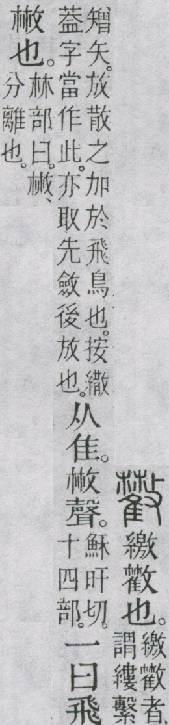 𢿱 繳𢿱也。繳𢿱者、
謂縷繫
矰矢。放散之加於飛鳥也。按繖
葢字當作此。亦取先斂後放也。从隹。㪔聲。穌旰切。
十四部。一曰飛
㪔也。林部曰。㪔、
分離也。